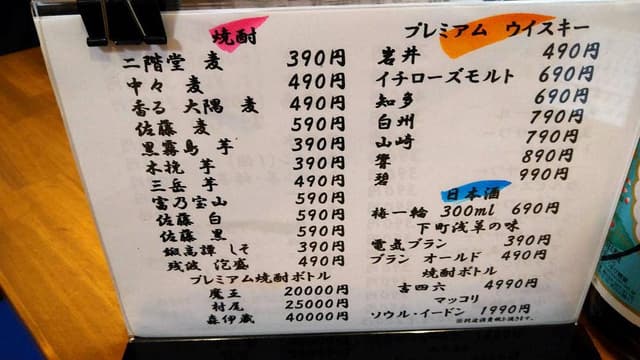 焼酎
二階堂 麦 390円
中々 麦 490円
香る 大隅 麦 490円
佐藤 麦 590円
黒霧島 芋 390円
木挽 芋 390円
三岳 芋 490円
富乃宝山 590円
佐藤 白 590円
佐藤 黒 590円
鍛高譚 しそ 390円
残波 泡盛 490円
プレミアム焼酎ボトル
魔王 20000円
村尾 25000円
森伊蔵 40000円
プレミアム ウイスキー
岩井 490円
イチローズモルト 690円
知多 690円
白州 790円
山崎 790円
響 890円
碧 990円
日本酒
椿一輪 300ml 690円
下町浅草の味
電気ブラン 390円
ブラン オールド 490円
焼酎ボトル
吉四六 4990円
マッコリ
ソウル・イードン 1990円
※別途消費税を頂きます。